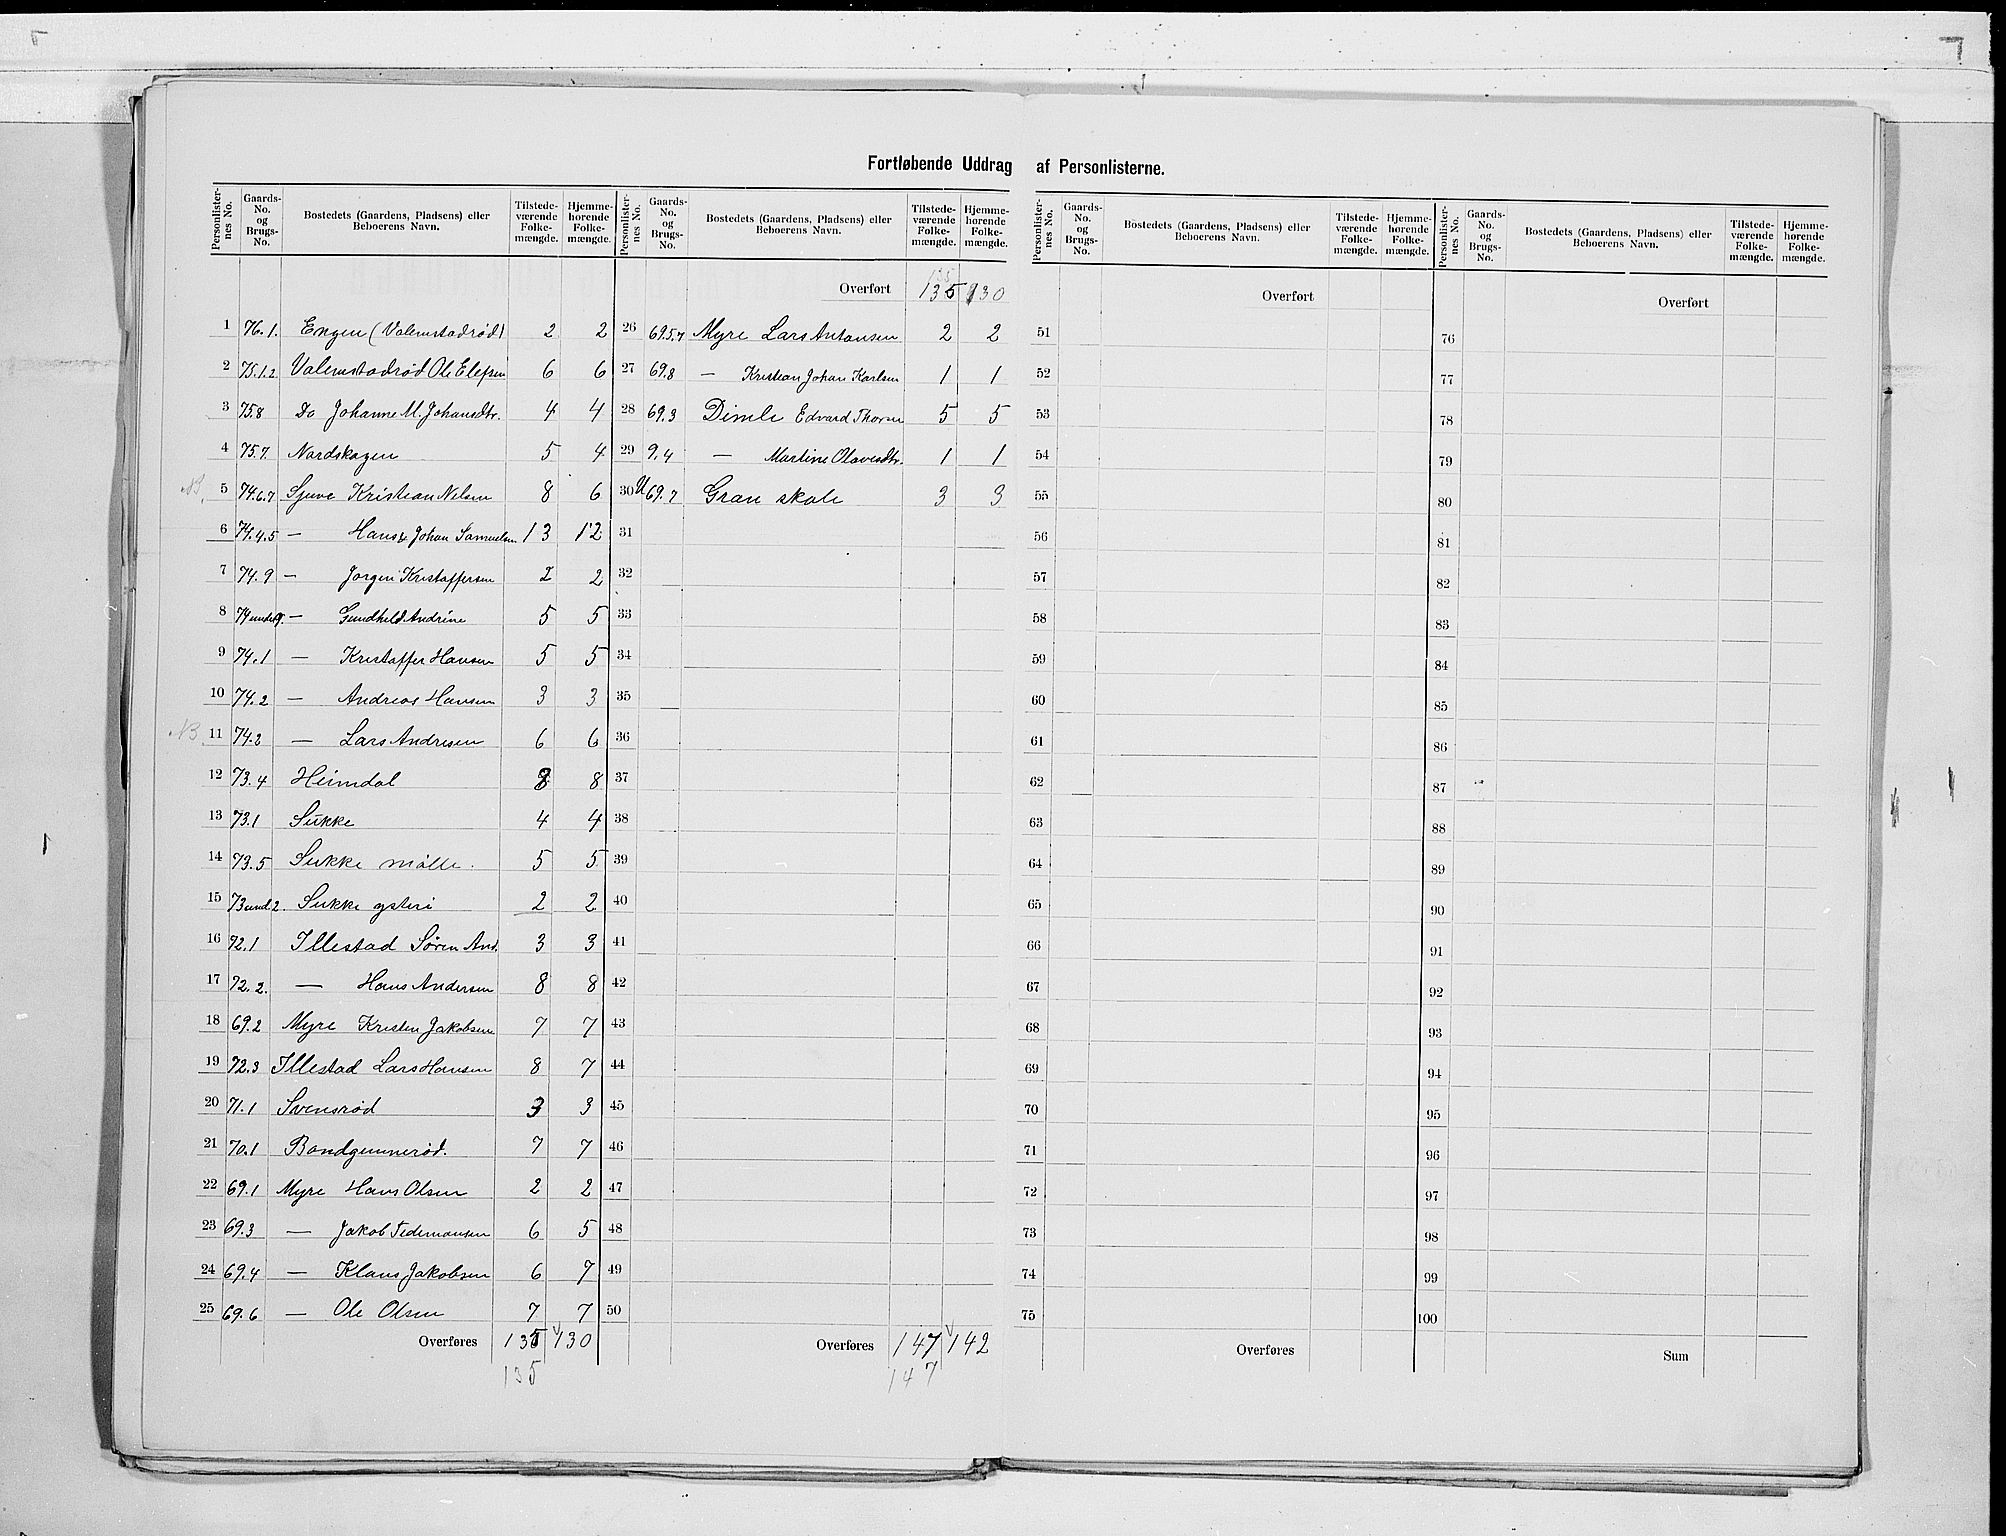 Fortløbende Uddrag af Personlisterne.
Personlister-nes No. Gaards-No. og Brugs-No. Bostedets (Gaardens, Pladsens) eller Beboerens Navn. Tilstede-værende Folke-mængde. Hjemme-hørende Folke-mængde.
1 76.1. Engen (Valemstadrød) 2 2
2 75.1.2 Valemstadrød Ole Elefsen 6 6
3 75.8 Do Johanne M. Johansdtr. 4 4
4 75.7. Nordskogen 5 4
NB. 5 74.6.7 Sjuve Kristian Nelsen 8 6
6 74.4.5 — Hans & Johan Samuelsen 13 12
7 74.9 — Jorgen Kristoffersen 2 2
8 74 under 9. — Gundhild Andrine 5 5
9 74.1 — Kristoffer Hansen 5 5
10 74.2 — Andreas Hansen 3 3
NB. 11 74.2 — Lars Andresen 6 6
12 73.4 Heimdal 8 8
13 73.1 Sukke 4 4
14 73.5 Sukke mølle. 5 5
15 73 und. 2. Sukke ysteri 2 2
16 72.1 Illestad Søren And. 3 3
17 72.2. — Hans Andersen 8 8
18 69.2 Myre Kristen Jakobsen 7 7
19 72.3 Illestad Lars Hansen 8 7
20 71.1 Svensrød 3 3
21 70.1 Bondgunnerød. 7 7
22 69.1 Myre Hans Olsen 2 2
23 69.3 — Jakob Tedemansen 6 5
24 69.4 — Klaus Jakobsen 6 7
25 69.6 — Ole Olsen 7 7
Overføres 135 130
135
Personlister-nes No. Gaards-No. og Brugs-No. Bostedets (Gaardens, Pladsens) eller Beboerens Navn. Tilstede-værende Folke-mængde. Hjemme-hørende Folke-mængde.
Overført 135 130
26 69.5.7 Myre Lars Antonsen 2 2
27 69.8 — Kristian Johan Karlsen 1 1
28 69.3 Dimle Edvard Thorsen 5 5
29 9.4 — Martine Olavesdtr. 1 1
30 U 69.7 Gran skole 3 3
31
32
33
34
35
36
37
38
39
40
41
42
43
44
45
46
47
48
49
50
Overføres 147 142
147
Personlister-nes No. Gaards-No. og Brugs-No. Bostedets (Gaardens, Pladsens) eller Beboerens Navn. Tilstede-værende Folke-mængde. Hjemme-hørende Folke-mængde.
Overført
51
52
53
54
55
56
57
58
59
60
61
62
63
64
65
66
67
68
69
70
71
72
73
74
75
Overføres
Personlister-nes No. Gaards-No. og Brugs-No. Bostedets (Gaardens, Pladsens) eller Beboerens Navn. Tilstede-værende Folke-mængde. Hjemme-hørende Folke-mængde.
Overført
76
77
78
79
80
81
82
83
84
85
86
87
88
89
90
91
92
93
94
95
96
97
98
99
100
Sum